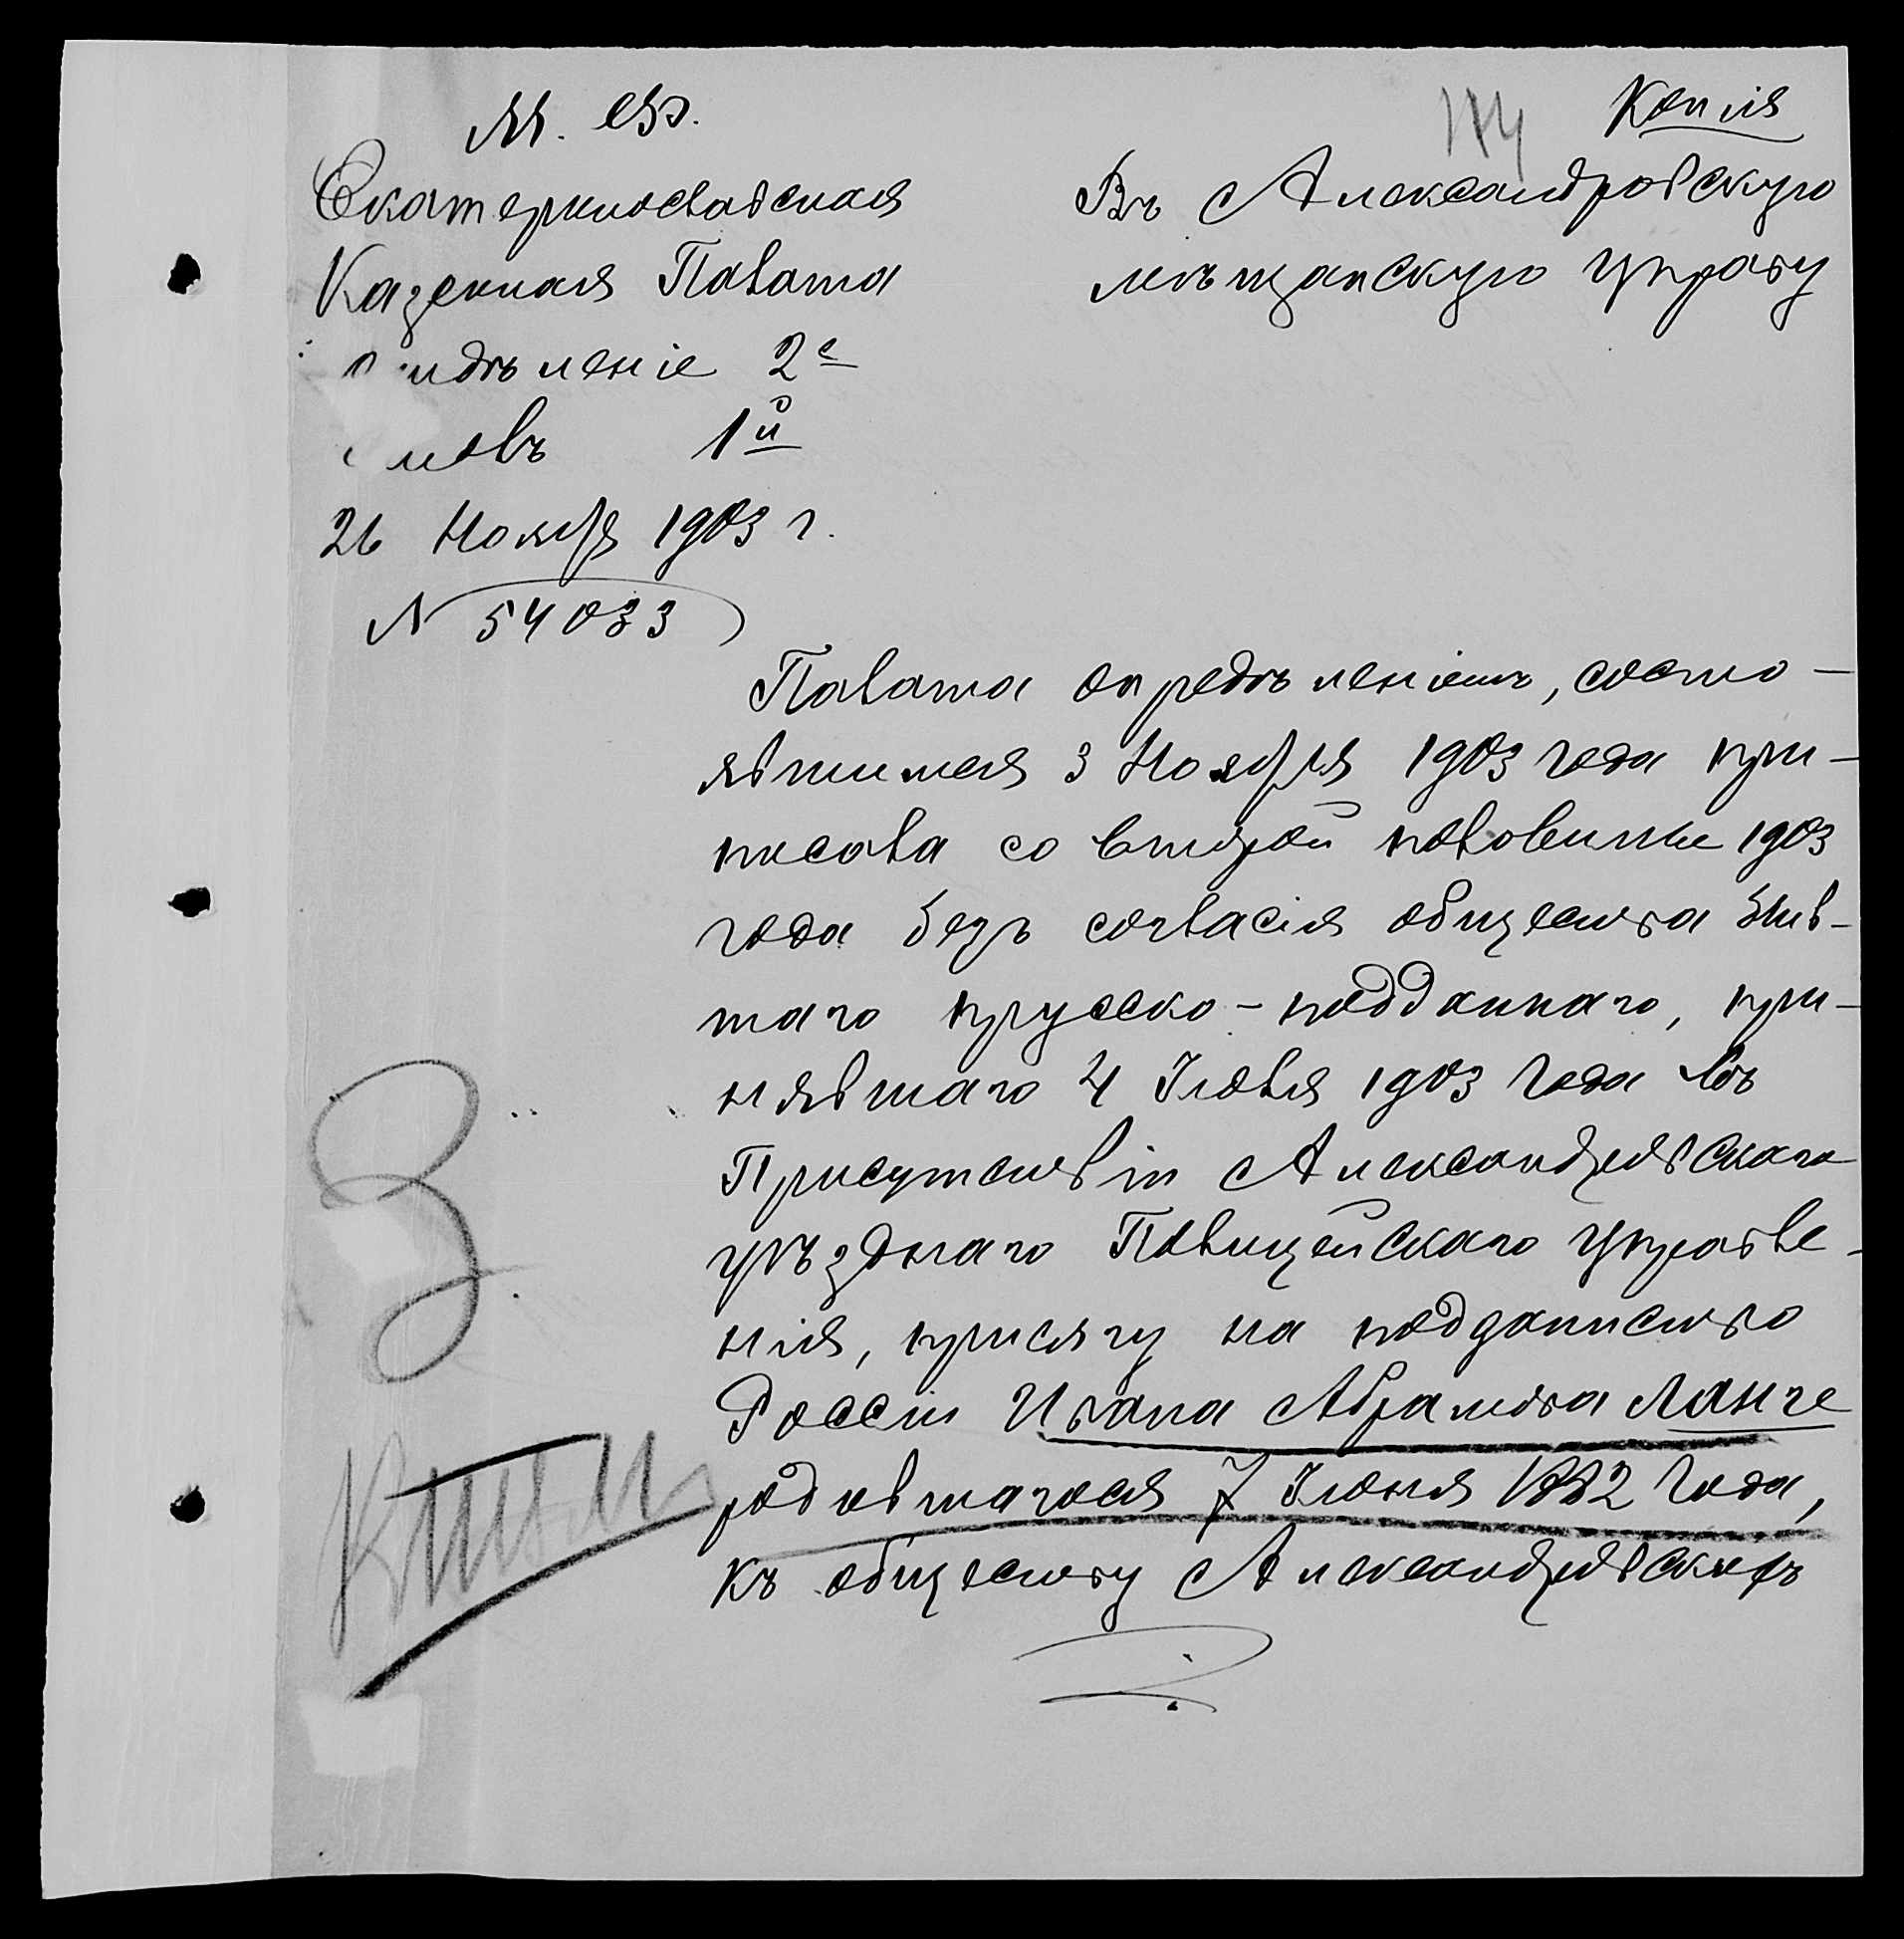 Копія
М. Ф.
Екатеринославская
Казенная Палата
Отдѣленіе 2е
Столъ 1й
26 Ноября 1903 г.
N 54033
Въ Александровскую
мѣщанскую управу
Палата опредѣленіемъ, состо-
явшимся 3 Ноября 1903 года при-
писала со второй половины 1903
года безъ согласія общества быв-
шаго прусско-подданнаго, при-
нявшаго 4 Іюля 1903 года въ
Присутствіи Александровскаго
уѣзднаго Полицейскаго Управле-
нія, присягу на подданство
Россіи Ивана Абрамова Ланге
родившагося 7 Іюня 1882 года,
къ обществу Александровскихъ